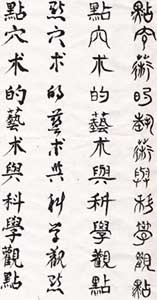 點穴術的藝術與科學觀點
點穴术的藝术與科學觀點
點穴术的藝术與科學觀點
點穴术的藝术與科學觀點